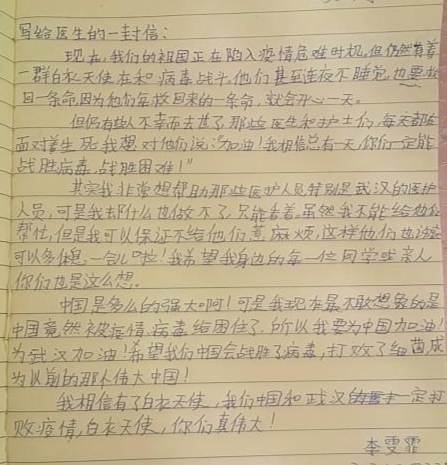 写给医生的一封信:
现在,我们的祖国正在陷入疫情危难时机,但仍然有着
一群白衣天使在和病毒战斗,他们甚至连夜不睡觉,也要救
回一条命,因为他们每救回来的一条命,就会开心一天。
但仍有些人不幸而去世了,那些医生和护士们,每天都在
面对着生死,我想对他们说:“加油!我相信总有一天,你们一定能
战胜病毒,战胜困难!”
其实我非常想帮助那些医护人员,特别是武汉的医护
人员,可是我却什么也做不了,只能看着,虽然我不能给他们
帮忙,但是我可以保证不给他们惹麻烦,这样他们也该
可以多休息一会儿啦!我希望我身边的每一位同学或亲人
你们也是这么想。
中国是多么的强大啊!可是我现在最不敢想象的是
中国竟然被疫情病毒给困住了,所以我要为中国加油!
为武汉加油!希望我们中国会战胜了病毒,打败了细菌成
为以前的那个伟大中国!
我相信有了白衣天使,我们中国和武汉一定打
败疫情,白衣天使,你们真伟大!
李雯霏